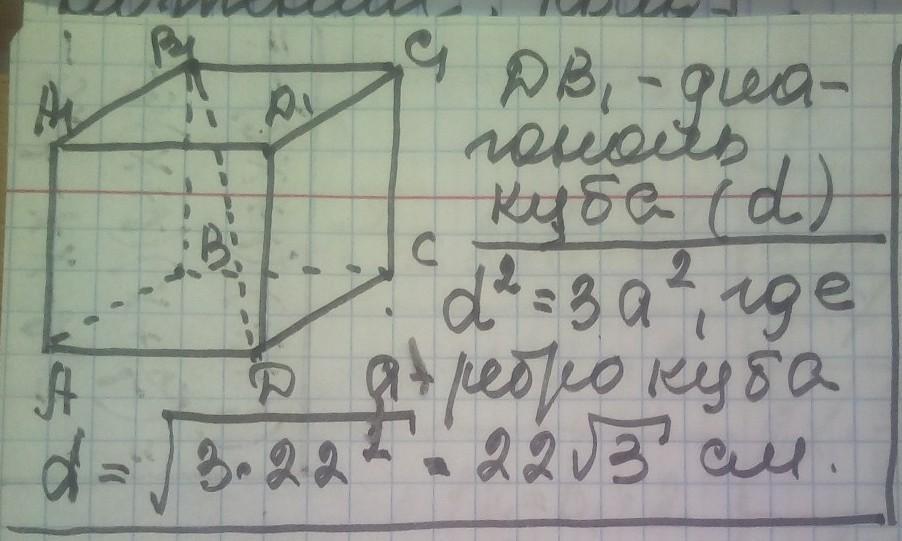 B₁
C₁
A₁
D₁
B
C
A
D
DB₁ - диа-
гональ
куба (d)
d² = 3a², где
a - ребро куба
d = √3·22² = 22√3 см.